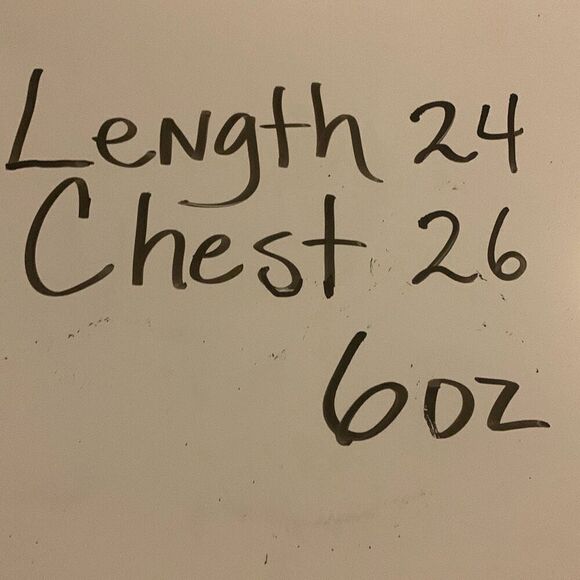 Length 24
Chest 26
6oz